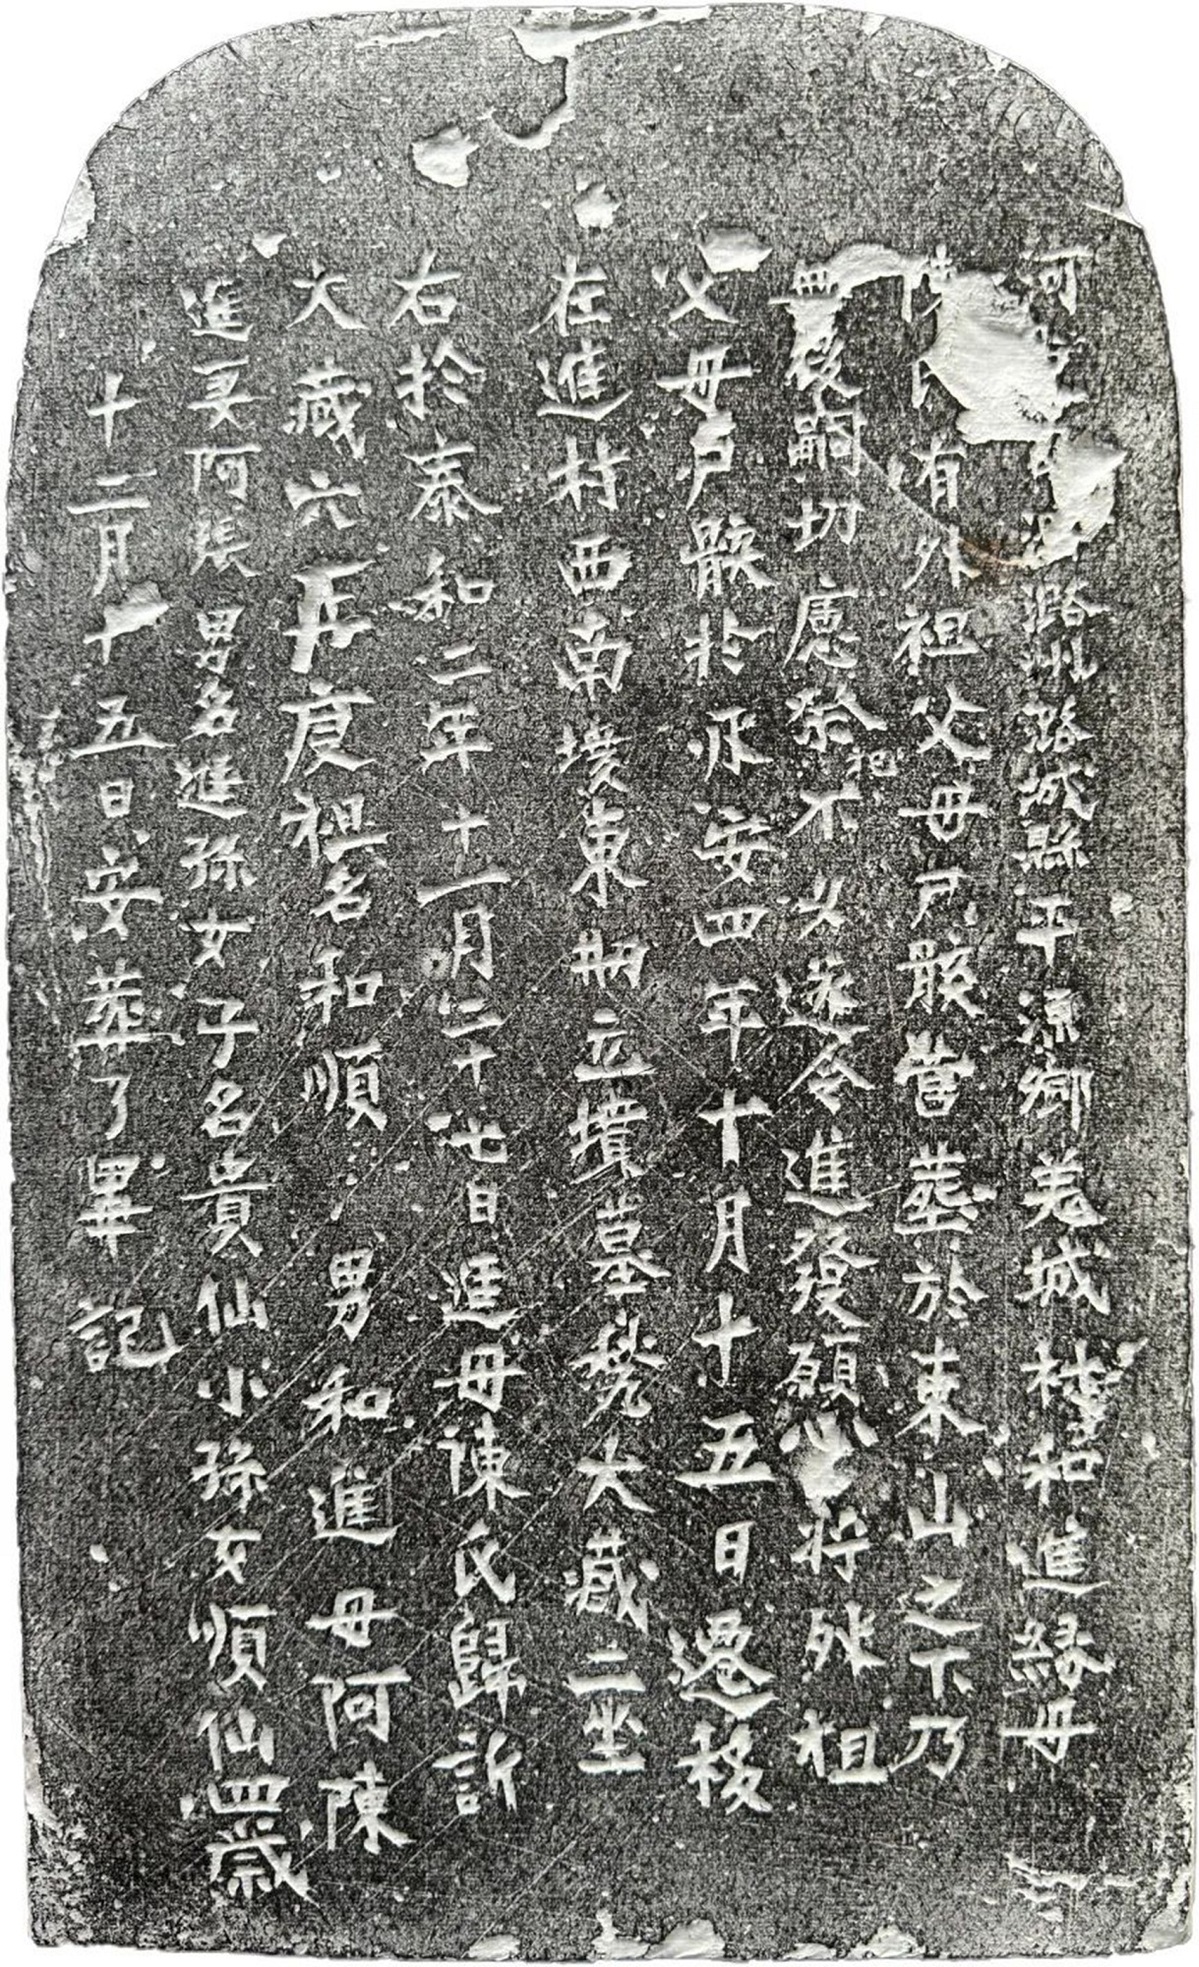 河 潞州潞城縣平源鄉羌城村和進緣母
陳 有外祖父母尸骸昔葬於東山之下乃
無後嗣切慮祭祀不义遂令進發願心将殁祖
父母尸骸於承安四年十月十五日遷移
在進村西南墳東物立墳墓甃大藏二坐
右於泰和二年十一月二十七日進母陳氏歸訴
大藏六 祖名和順 男和進 母阿陳
進妻阿張 男名進孫女子名貴仙小孫女順仙四歲
十二月十五日安葬了畢記